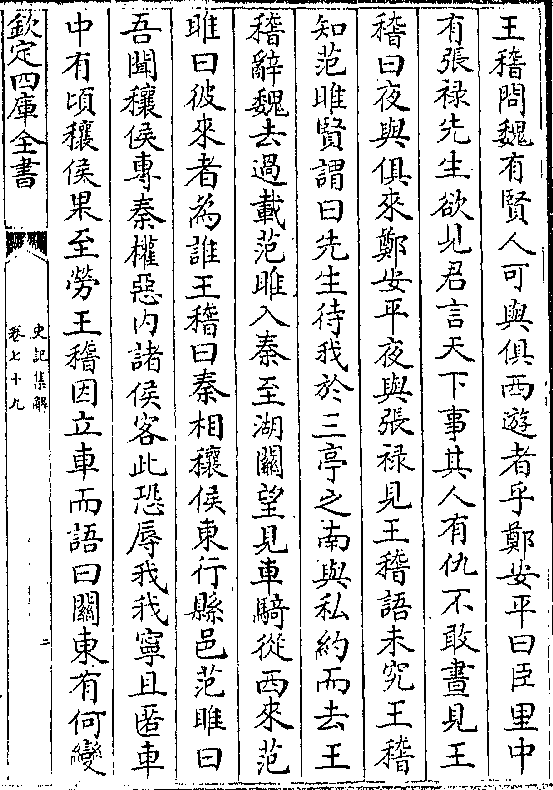 王稽問魏有賢人可與俱西遊者乎鄭安平曰臣里中
有張祿先生欲見君言天下事其人有仇不敢晝見王
稽曰夜與俱來鄭安平夜與張祿見王稽語未究王稽
知范雎賢謂曰先生待我於三亭之南與私約而去王
稽辭魏去過載范雎入秦至湖關望見車騎從西來范
雎曰彼來者為誰王稽曰秦相穰侯東行縣邑范雎曰
吾聞穰侯專秦權惡内諸侯客此恐辱我我寧且匿車
中有頃穰侯果至勞王稽因立車而語曰關東有何變
欽定四庫全書
史記集解
卷七十九
二